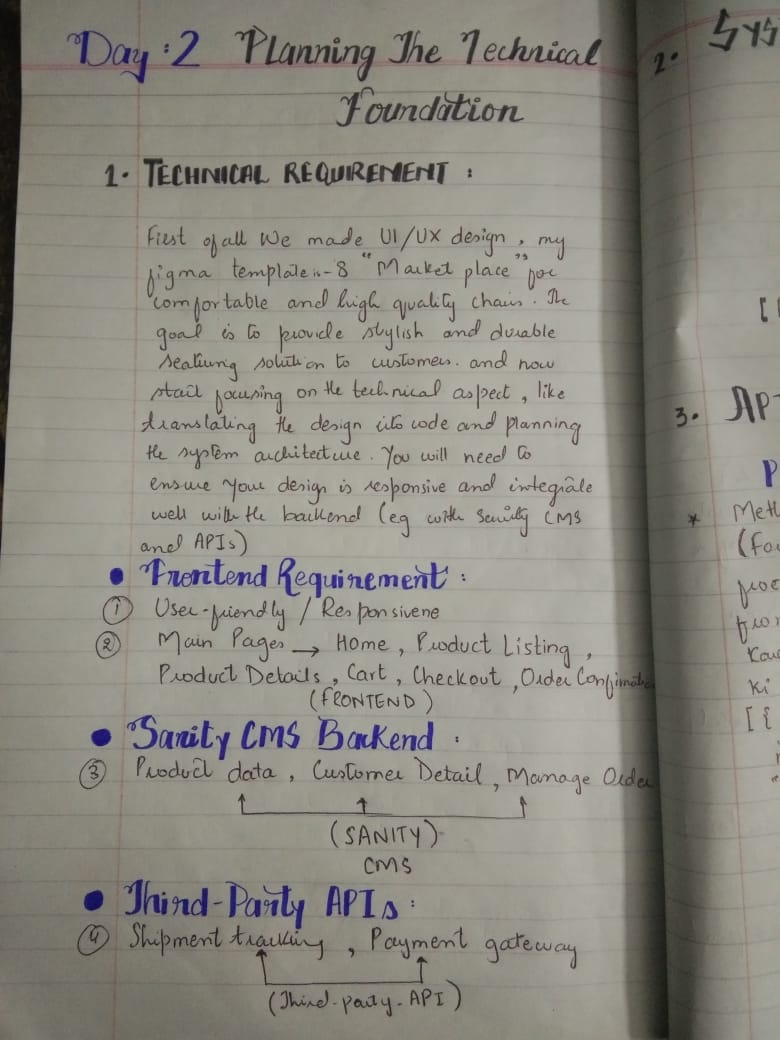 Day : 2 Planning The Technical
Foundation
1. TECHNICAL REQUIREMENT :
First of all We made UI/UX design, my
figma template is-8 "Market place" for
comfortable and high quality chairs. The
goal is to provide stylish and durable
seatiung solution to customers. and now
start focusing on the technical aspect, like
translating the design into code and planning
the system architecture. You will need to
ensure your design is responsive and integrate
well with the backend (eg with Sanity CMS
and APIs)
• Frontend Requirement :
① User-friendly / Responsivene
② Main Pages → Home, Product Listing,
Product Details, Cart, Checkout, Order Confirmatio
(FRONTEND)
• Sanity CMS Backend :
③ Product data, Customer Detail, Manage Order
(SANITY)
CMS
• Third-Party APIs :
④ Shipment tracking, Payment gateway
(Third-party-API)
2. Sys
[
3. AP
P
* Meth
(
[{